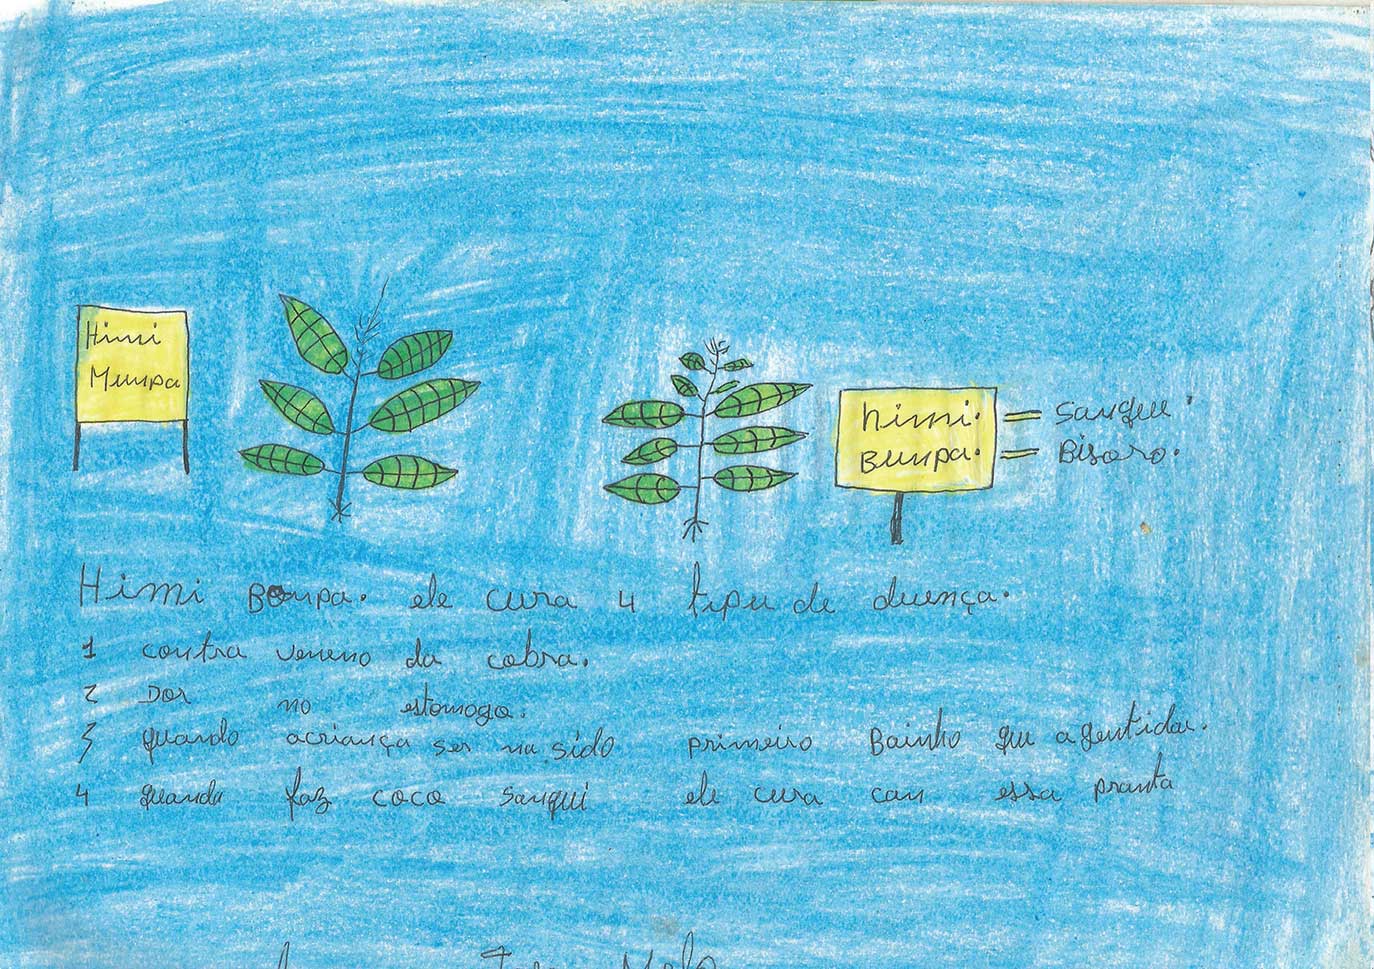 Himi
Munpa
himi.
Bunpa.
= sangue.
= Bisoro.
Himi Bunpa. ele cura 4 tipu de duença.
1 contra veneno da cobra.
2 Dor no estomogo.
3 quando acriança ser na sido primeiro Bainho que agentida.
4 quando faz coco sanqui ele cura can essa pranta